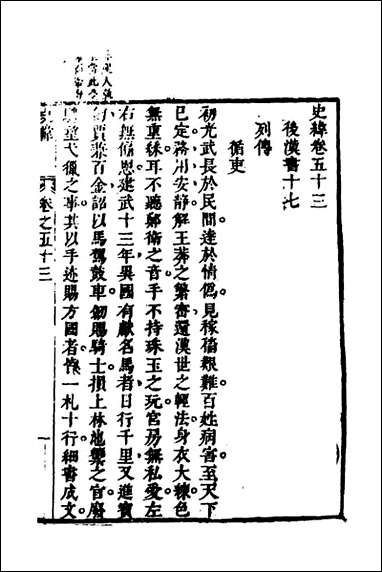 史緯卷五十三
後漢書十七
列傳
循吏
初光武長於民間達於情僞見稼穡艱難百姓病害至天下
已定務用安靜解王莽之繁密還漢世之輕法身衣大練色
無重綵耳不聽鄭衛之音手不持珠玉之玩宮房無私愛左
右無偏恩建武十三年異國有獻名馬者日行千里又進寶
劍賈兼百金詔以馬駕鼓車劍賜騎士損上林池籞之官廢
騁望弋獵之事其以手迹賜方國者皆一札十行細書成文
史緯 卷之五十三 一